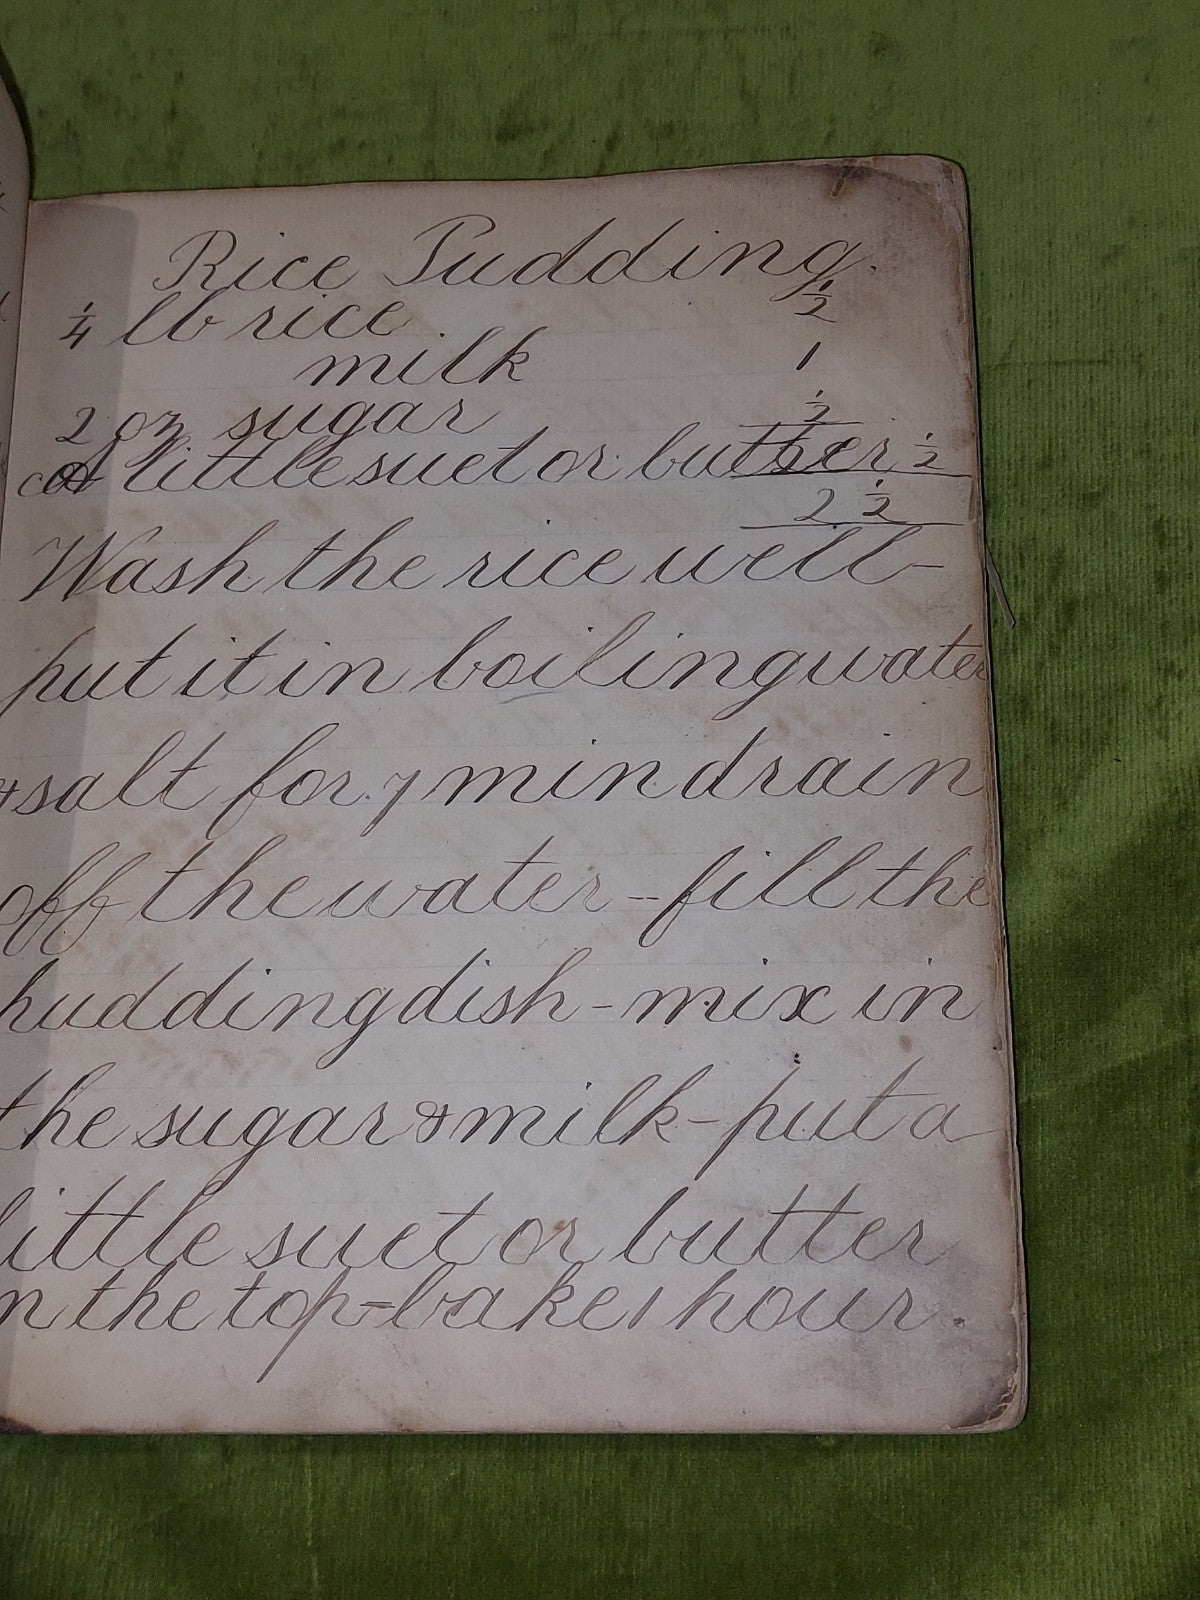 Rice Pudding.
1/4 lb rice 1/2
milk 1
2 oz sugar 1/2
a little suet or butter 1/2
2 1/2
Wash the rice well-
put it in boiling water
& salt for 7 min drain
off the water - fill the
pudding dish - mix in
the sugar & milk - put a
little suet or butter
on the top - bake 1 hour.